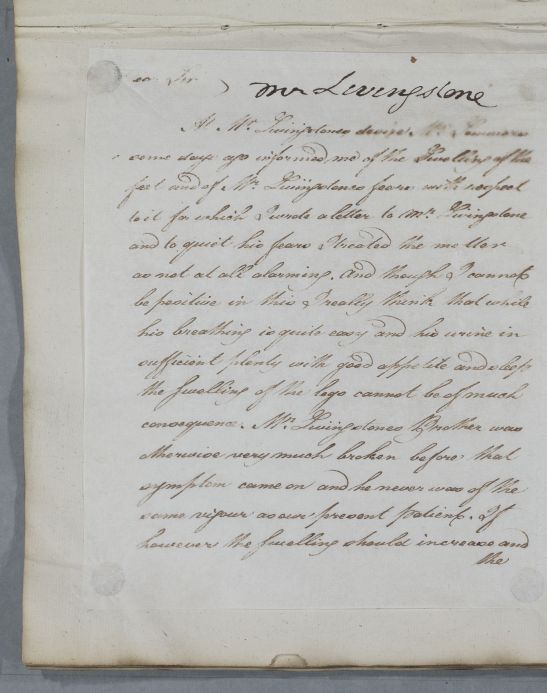 Dear Sir
Mr Livingstone
At Mr. Livingstones desire Mr.
some days ago informed me of the Swelling of the
feet and of Mr. Livingstones fears with respect
to it for which I wrote a letter to Mr. Livingstone
and to quiet his fears I treated the matter
as not at all alarming. And though I cannot
be positive in this I really think that while
his breathing is quite easy and his urine in
sufficient plenty with good appetite and sleep
the Swelling of the legs cannot be of much
consequence. Mr. Livingstones Brother was
otherwise very much broken before that
symptom came on and he never was of the
same vigour as our present patient. If
however the Swelling should increase and
the